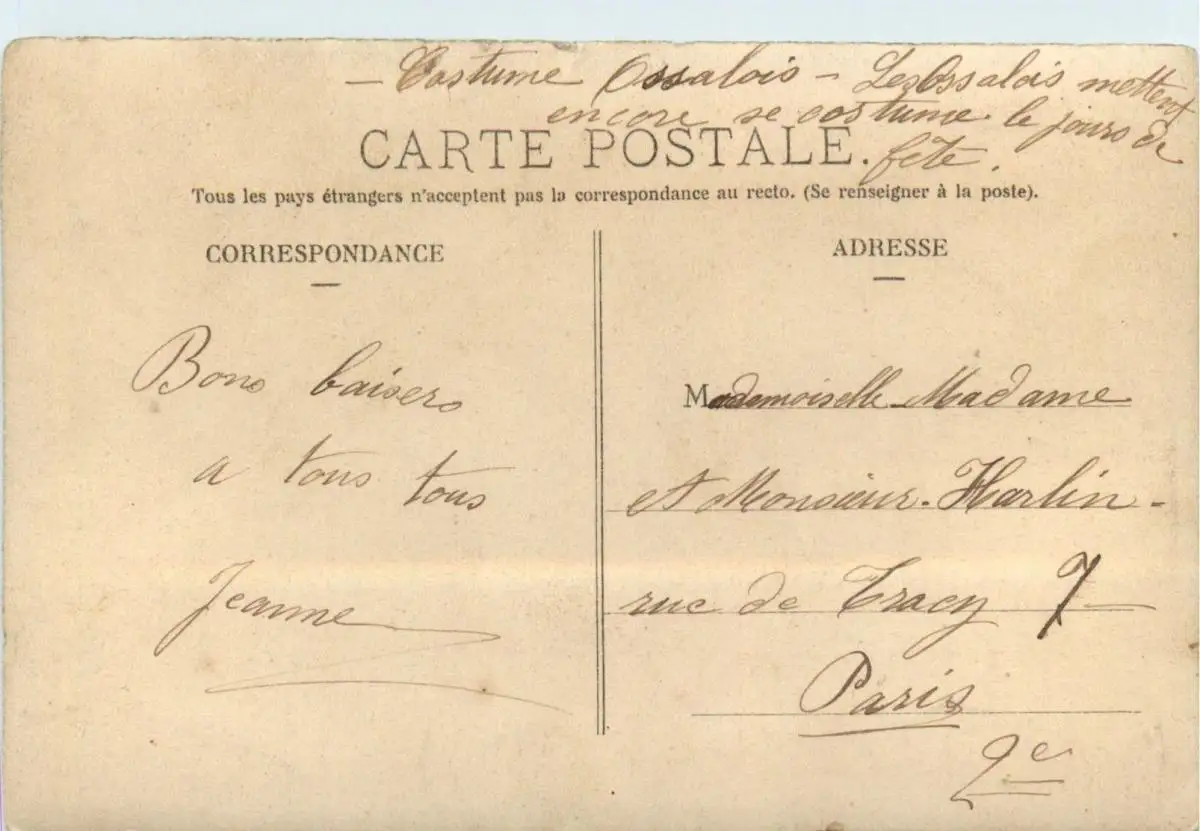 — Costume Ossalois — Les Ossalois mettent
encore se costume le jours de
fête.
CARTE POSTALE.
Tous les pays étrangers n'acceptent pas la correspondance au recto. (Se renseigner à la poste).
CORRESPONDANCE
Bons baisers
a tous tous
Jeanne
ADRESSE
Mademoiselle Madame
et Monsieur. Harlin -
rue de Tracy 7
Paris
2e